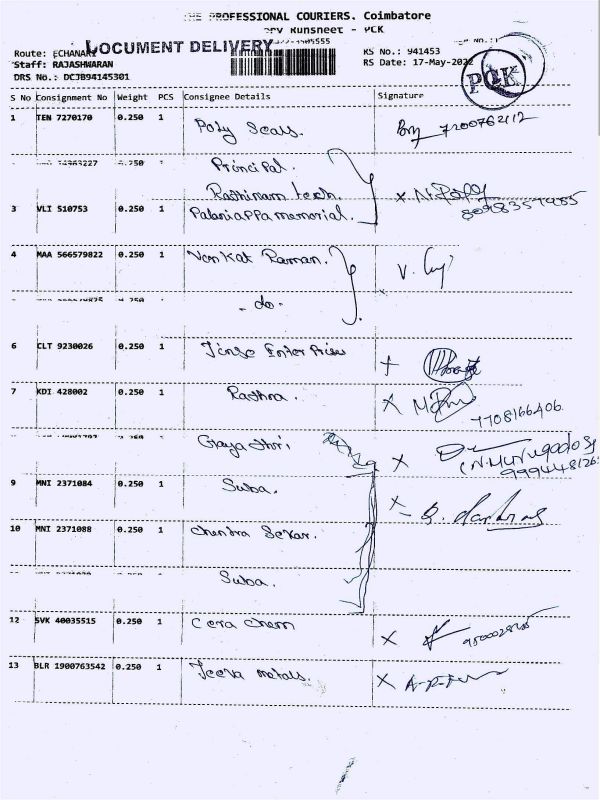 THE PROFESSIONAL COURIERS. Coimbatore
Runsheet - PCK
Route: ECHANARI
DOCUMENT DELIVERY
KS No.: 941453
Staff: RAJASHWARAN
RS Date: 17-May-2022
PCK
DRS No.: DCJB94145301
S No Consignment No Weight PCS Consignee Details Signature
1 TEN 7270170 0.250 1 Poly Seals. 7200762112
Principal.
Rathinam tech.
3 VLI 510753 0.250 1 Palaniappa memorial. 8098357485
4 MAA 566579822 0.250 1 Venkat Raman.
- do -
6 CLT 9230026 0.250 1 Jinse Enterprises
7 KDI 428002 0.250 1 Rathna. 7708166406
Gayathri.
9 MNI 2371084 0.250 1 Suba.
10 MNI 2371088 0.250 1 Chendra Sekar.
Suba.
12 SVK 40035515 0.250 1 Cera Chem
13 BLR 1900763542 0.250 1 Jeeva metals.